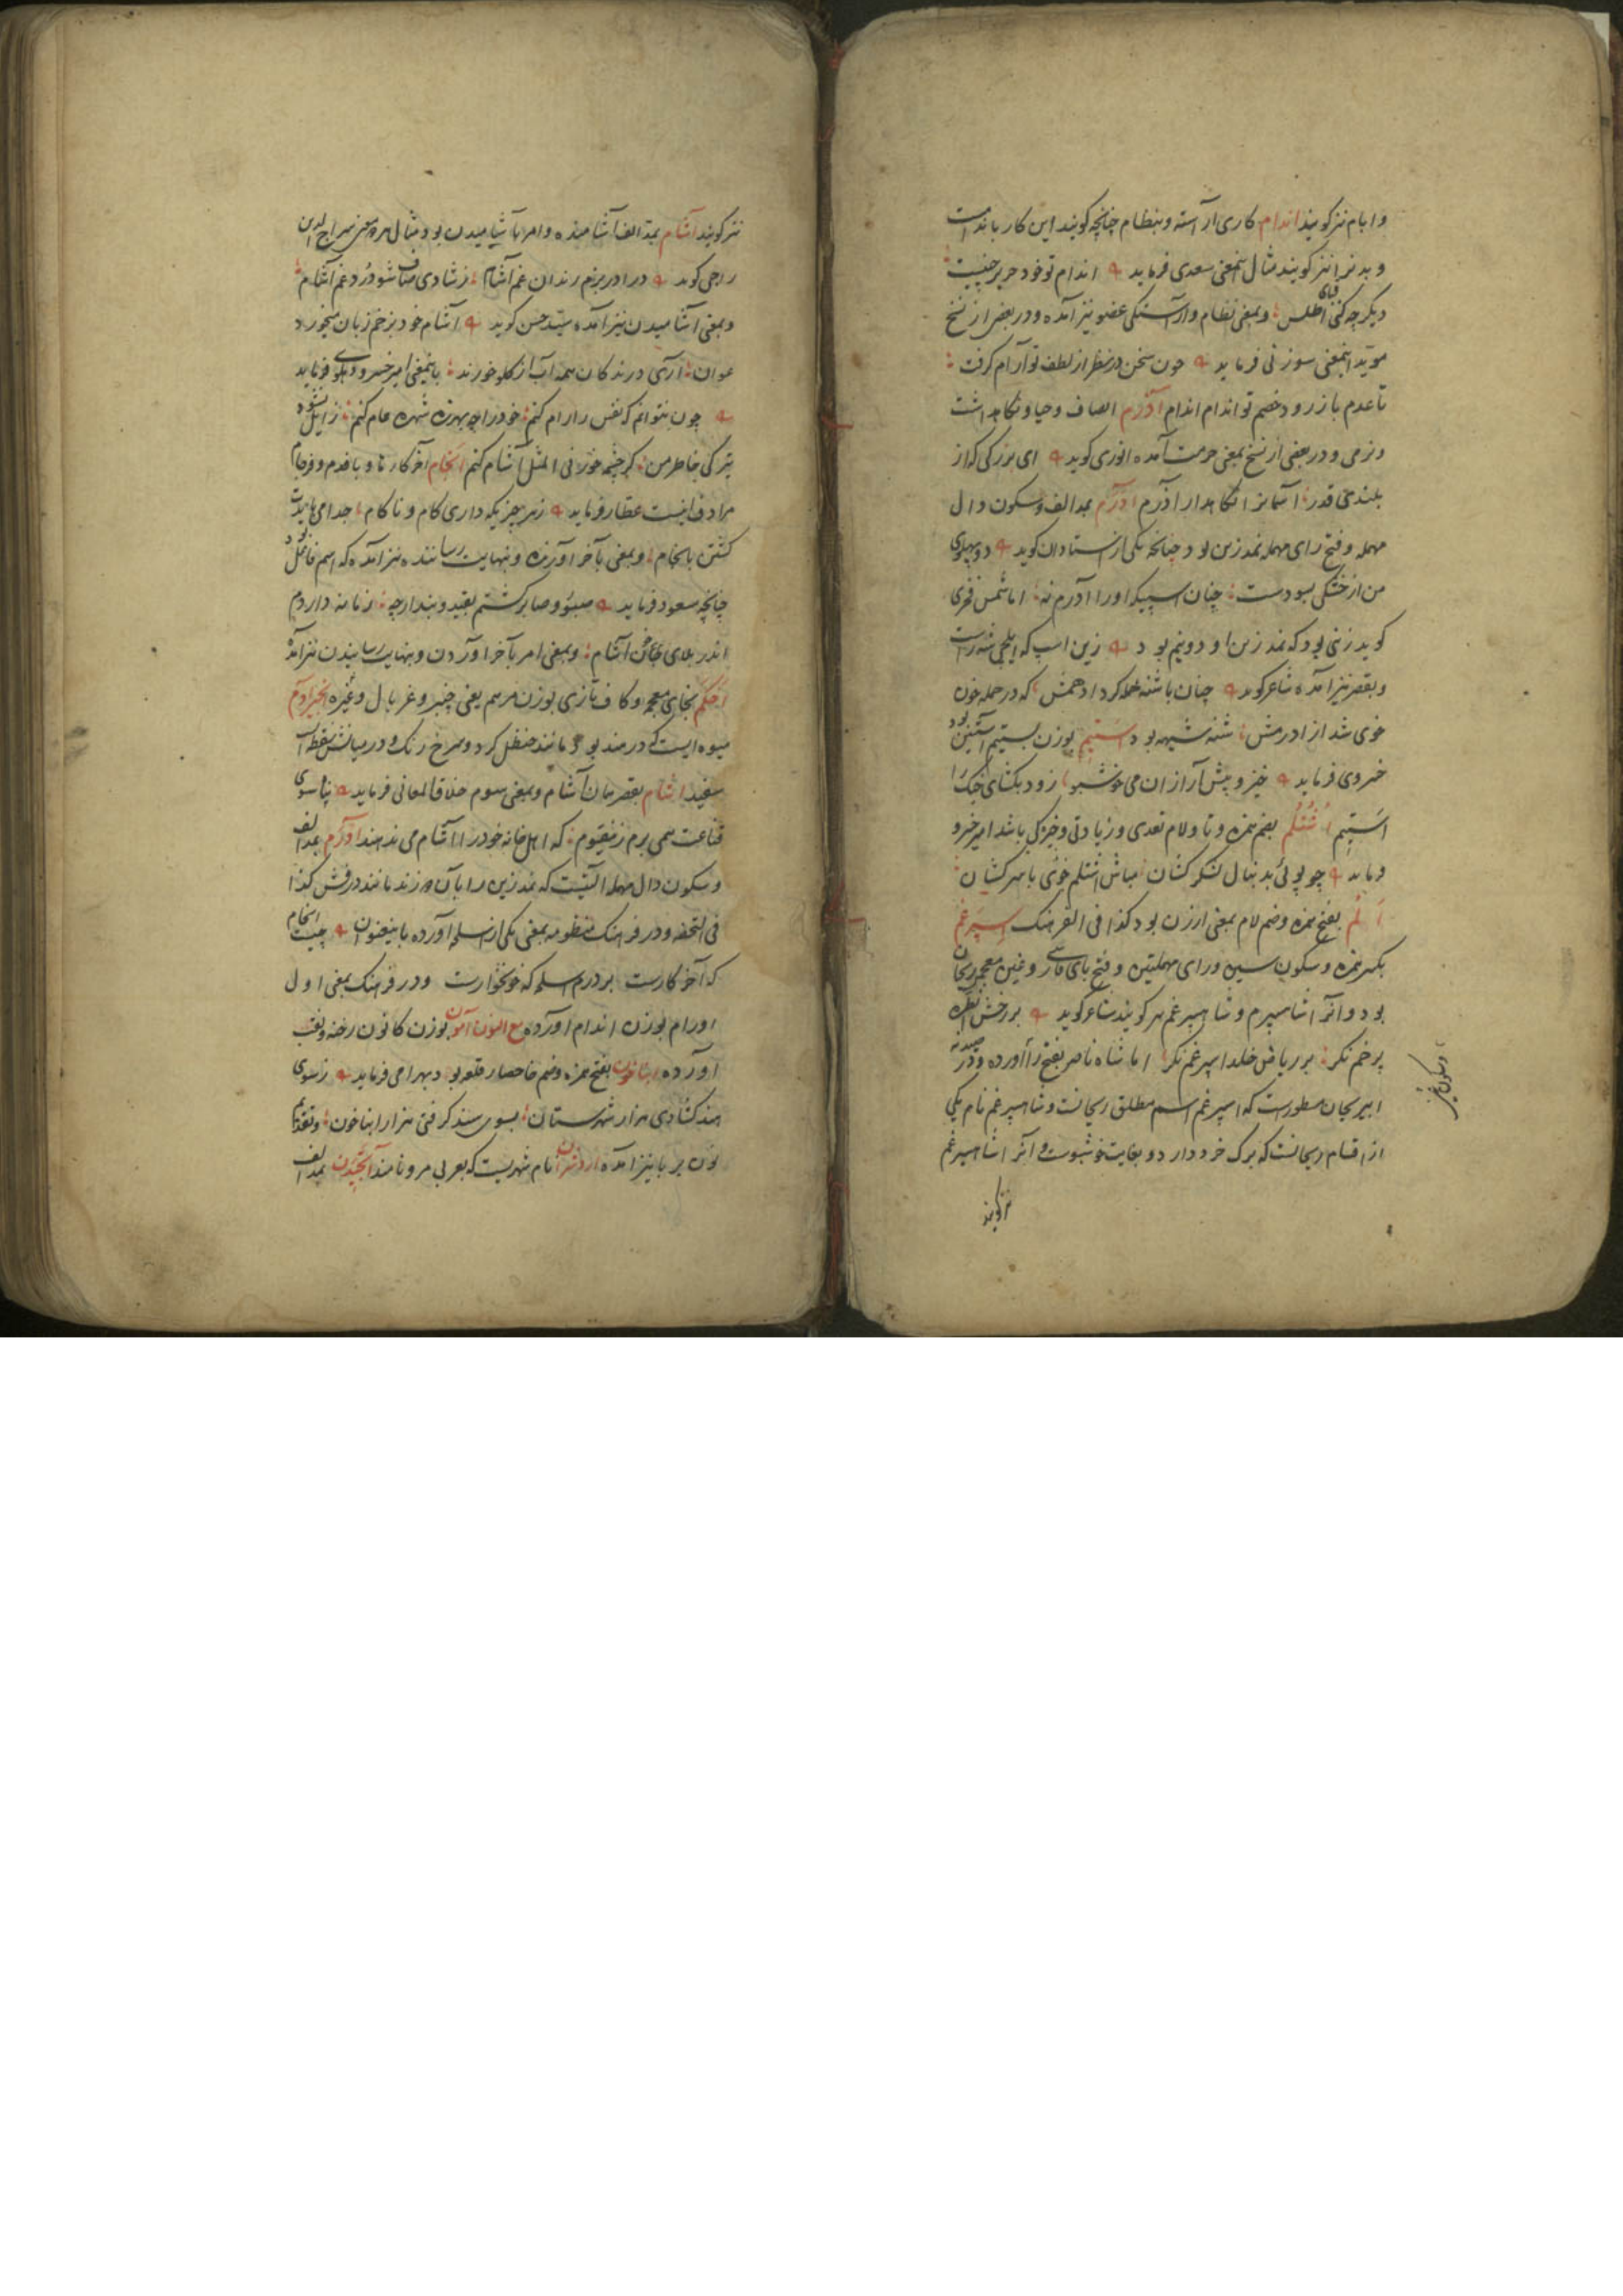 وابام نیز کویند اندام کاری آراسته و بنظام چنانچه کویند این کار باندامست
و بدنرا نیز کویند مثال اینمعنی سعدی فرماید اندام تو خود حریر چینیست
دیکر چه کنی قبای اطلس و بمعنی نظام و آراستکی عضو نیز آمده و در بعضی از نسخ
موید اینمعنی سوزنی فرماید چون سخن در نظر از لطف تو آرام کرفت
تا عدم باز رود خصم تو اندام اندام آزرم انصاف و حیا و نکاهداشت
و نرمی و در بعضی از نسخ بمعنی حرمت آمده انوری کوید ای بزرکی که از
بلندی قدر آسمانرا نکاهدار آزرم آدرم بمد الف و سکون دال
مهمله و فتح رای مهمله نمدزین بود چنانچه یکی از استادان کوید دو پهلوی
من از خشکی بسودست چنان اسپیکه او را آدرم نه اما شمس فخری
کوید زینی بود که نمد زین او دو نیم بود زین اسپ که
و بقصر نیز آمده شاعر کوید چنان باشنه حمله کرد ادهمش که در حمله خون
خوی شد از ادرمش شنه شیهه بود استیم بوزن بستیم آستین بود
خسروی فرماید خیز و پیش آر از ان می خوشبو زود بکشای خیک را
استیم اشتلم بضم همزه و تا و لام تعدی و زیادتی و خیرکی باشد امیر خسرو
فرماید چو پوئی بدنبال لشکر کشان مباش اشتلم خوی با سرکشان
الم بفتح همزه و ضم لام بمعنی ارزن بود کذا فی الفرهنک اسپرغم
بکسر همزه و سکون سین و رای مهملتین و فتح بای فارسی و غین معجمه ریحان
بود و آنرا شاسپرم و شاهسپرغم هم کویند شاعر کوید بر رخش
پر خم نکر بر ریاض خلد اسپرغم نکر اما شاه ناصر بفتح را آورده و در صیدنه
ابی ریحان مسطورست که اسپرغم اسم مطلق ریحانست و شاهسپرغم نام یکی
از اقسام ریحانست که برک خرد دارد و بغایت خوشبوست و آنرا شاهسپرغم
نیز کویند
نیز کویند آشام بمد الف آشامیده و امر بآشامیدن بود و مثال هر دو معنی سراج الدین
راجی کوید درا در بزم رندان غم آشام ز شادی صاف شو در درد غم آشام
و بمعنی آشامیدن نیز آمده سید حسن کوید آشام خود بزخم زبان میخورد
عوان آری درندکان همه آب از کلو خورند باینمعنی امیر خسرو دهلوی فرماید
چون نتوانم که نفس را رام کنم خود را چه بهرزه شهره عام کنم زایل نشود
تیرکی خاطر من کر چشمه خور فی المثل آشام کنم انجام آخر کارها و با فدم و فرجام
مرادفانیست عطار فرماید ز هر چیزیکه داری کام و ناکام جدا می بایدت
کشتن بانجام و بمعنی بآخر آورنده و بنهایت رساننده نیز آمده که اسم فاعل بود
چنانچه مسعود فرماید صبور و صابر کشتم بقید و بند ارچه زمانه داردم
اندر بلای آشام و بمعنی امر بآخر آوردن و بنهایت رسانیدن نیز آمده
اخکم بخای معجمه و کاف تازی بوزن مرهم یعنی چنبر دف و غربال و غیره
میوه ایست که در هند بود مانند حنظل کرد و سرخ رنک و در میانش نقطهای
سفید اشام بقصر همان آشام و بمعنی سوم خلاق المعانی فرماید
قناعت همی برم ز که اهل خانه خود را اشام می ندهند آدرم بمد الف
و سکون دال مهمله آلتیست که نمدزین را بآن دوزند مانند درفش کذا
فی التحفه و در فرهنک منظومه بمعنی یکی از اسلحه آورده باینعنوان چیست انجام
که آخر کارست بردرم اسلحه که خونخوارست و در فرهنک بمعنی اول
اورام بوزن اندام آورده مع النون آهون بوزن کانون رخنه و نقب
آورده ابناخون بفتح همزه و ضم خا حصار و قلعه بود بهرامی فرماید ز سوی
هند کشادی هزار شهرستان بسوی سند کرفتی هزار ابناخون و بتقدیم
نون بر با نیز آمده نام شهریست که بعربی مرو نامند بمد الف